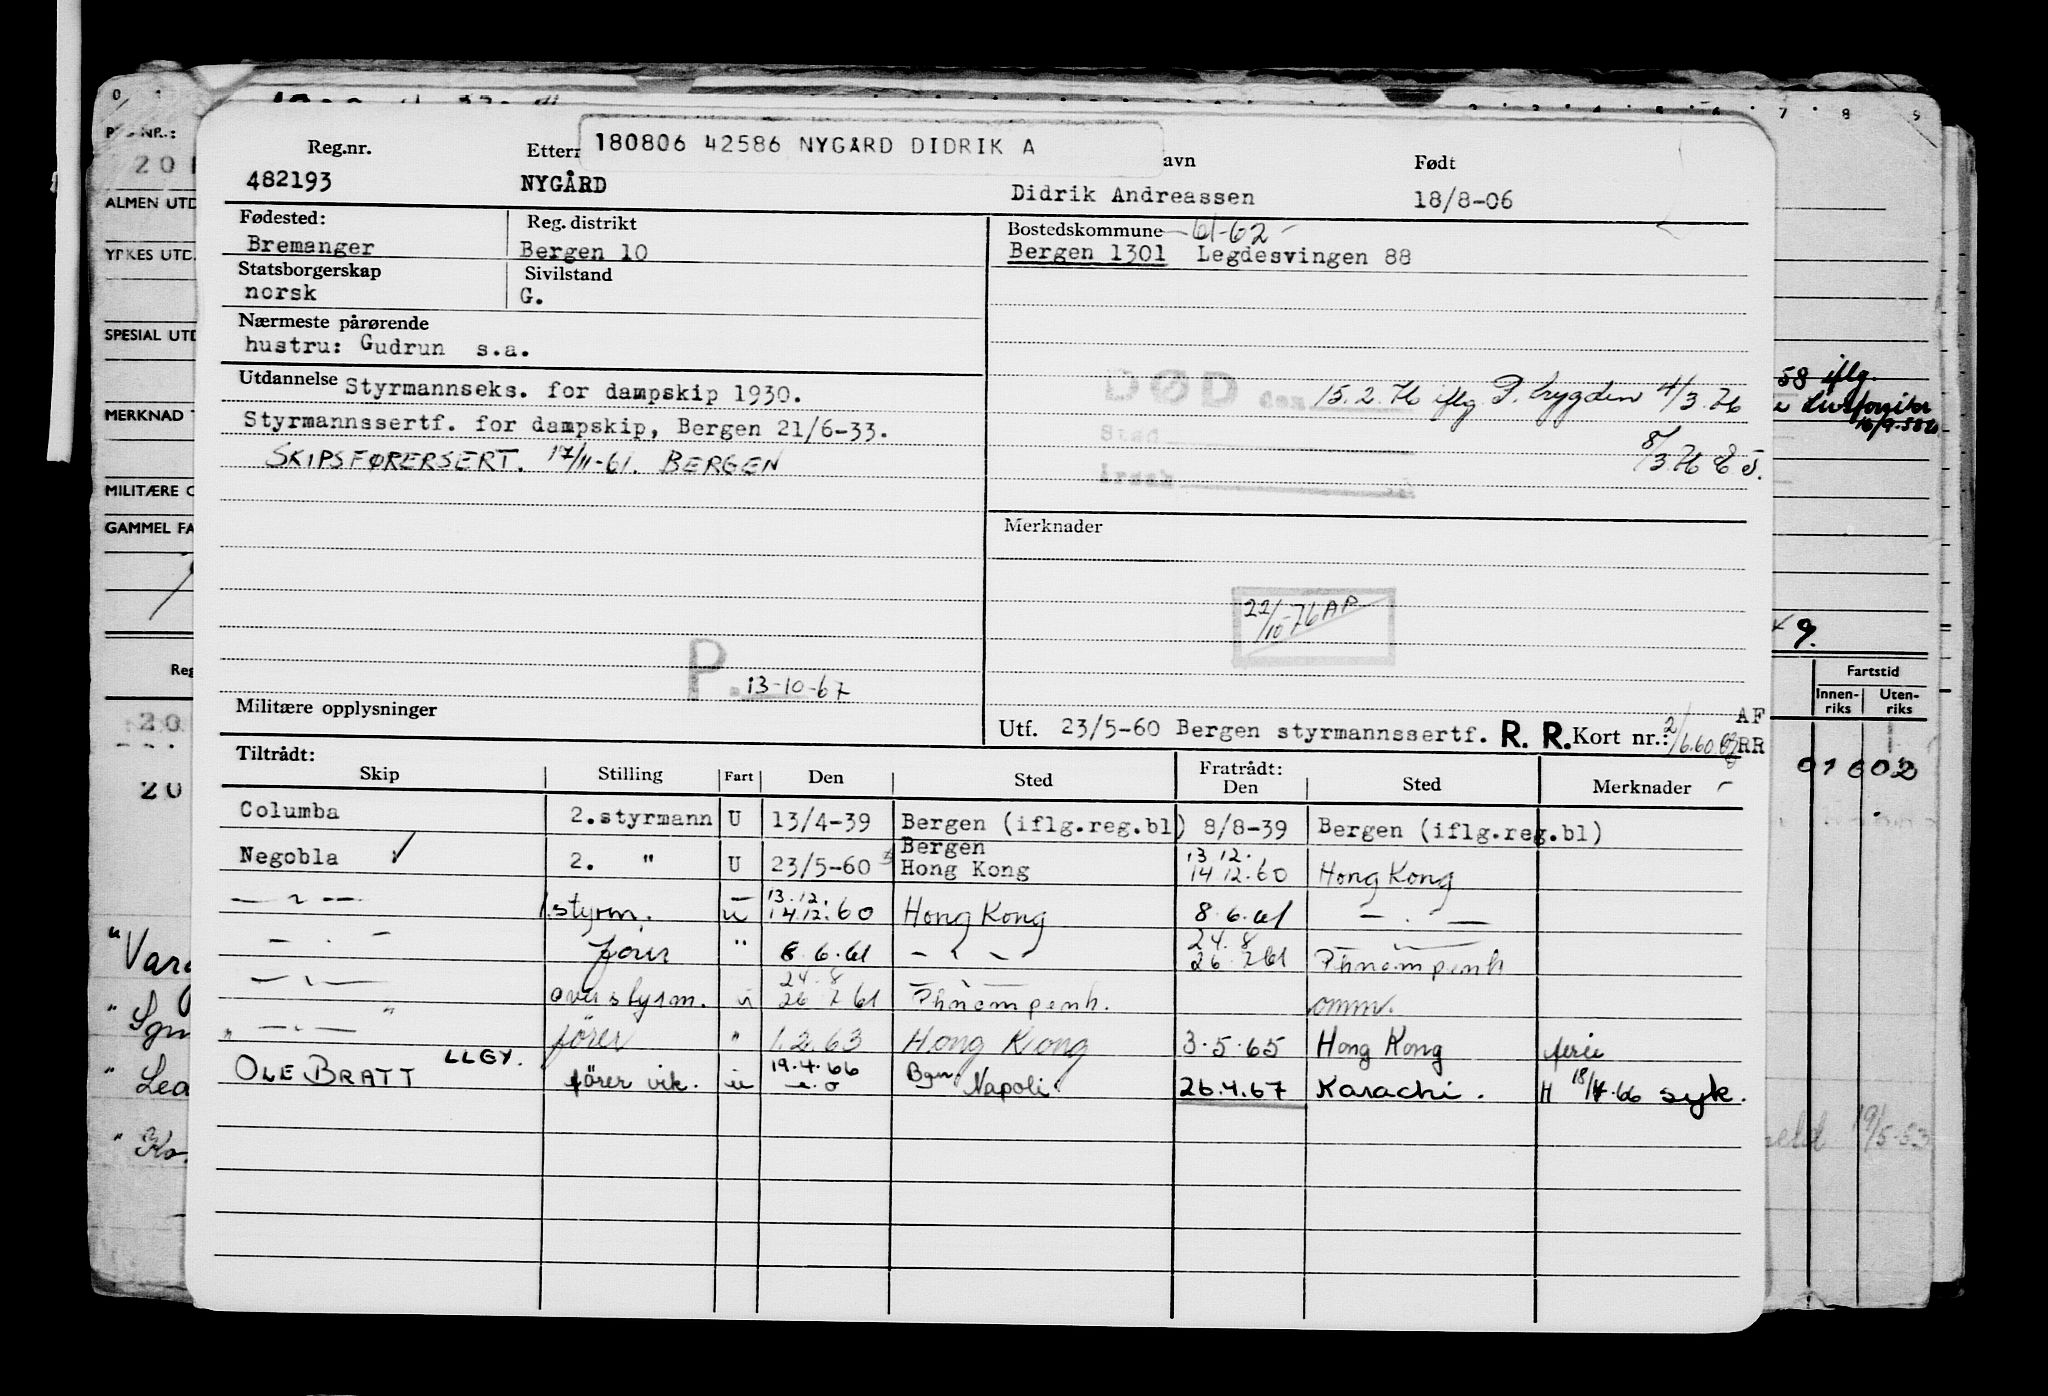 180806 42586 NYGÅRD DIDRIK A
Reg.nr.
482193
NYGÅRD
avn
Didrik Andreassen
Født
18/8-06
Fødested:
Bremanger
Reg. distrikt
Bergen 10
Bostedskommune 61-62
Bergen 1301 Legdesvingen 88
Statsborgerskap
norsk
Sivilstand
G.
Nærmeste pårørende
hustru: Gudrun s.a.
Utdannelse Styrmannseks. for dampskip 1930.
Styrmannssertf. for dampskip, Bergen 21/6-33.
SKIPSFØRERSERT. 17/11-61. BERGEN
DØD den 15.2.76 iflg. P. trygden 4/3.76
Sted
Årsak
8/3.76
Merknader
22/10-76 AP
P. 13-10-67
Militære opplysninger
Utf. 23/5-60 Bergen styrmannssertf. R. R. Kort nr.: 2/6.60
AF
RR
Tiltrådt:
Skip Stilling Fart Den Sted
Fratrådt:
Den Sted Merknader
Columba 2.styrmann U 13/4-39 Bergen (iflg.reg.bl) 8/8-39 Bergen (iflg.reg.bl)
Negobla ✓ 2. " U 23/5-60 Bergen Hong Kong 13 12. 14 12.60 Hong Kong
— " — 1.styrm. u 13.12. 14.12.60 Hong Kong 8.6.61 — . —
— . — fører " 8.6.61 — " — 24.8 26.7 61 Phnompenh
— . — overstyrm. u 24.8 26 7 61 Phnompenh. omm.
" — . — " fører " 1.2.63 Hong Kong 3.5.65 Hong Kong ferie
OLE BRATT LLGY. fører vik. u 19.4.66 Bgn. Napoli. 26.4.67 Karachi. H 18/4.66 syk.
REG NR.:
ALMEN UTD
YRKES UTD.
SPESIAL UTD
MERKNAD T
MILITÆRE O
GAMMEL FA
Reg
20
20
"Varg
" Sgn
" Lea
" Ko.
58 iflg.
9.
Fartstid
Innenriks
Utenriks
01 002
19/5-53